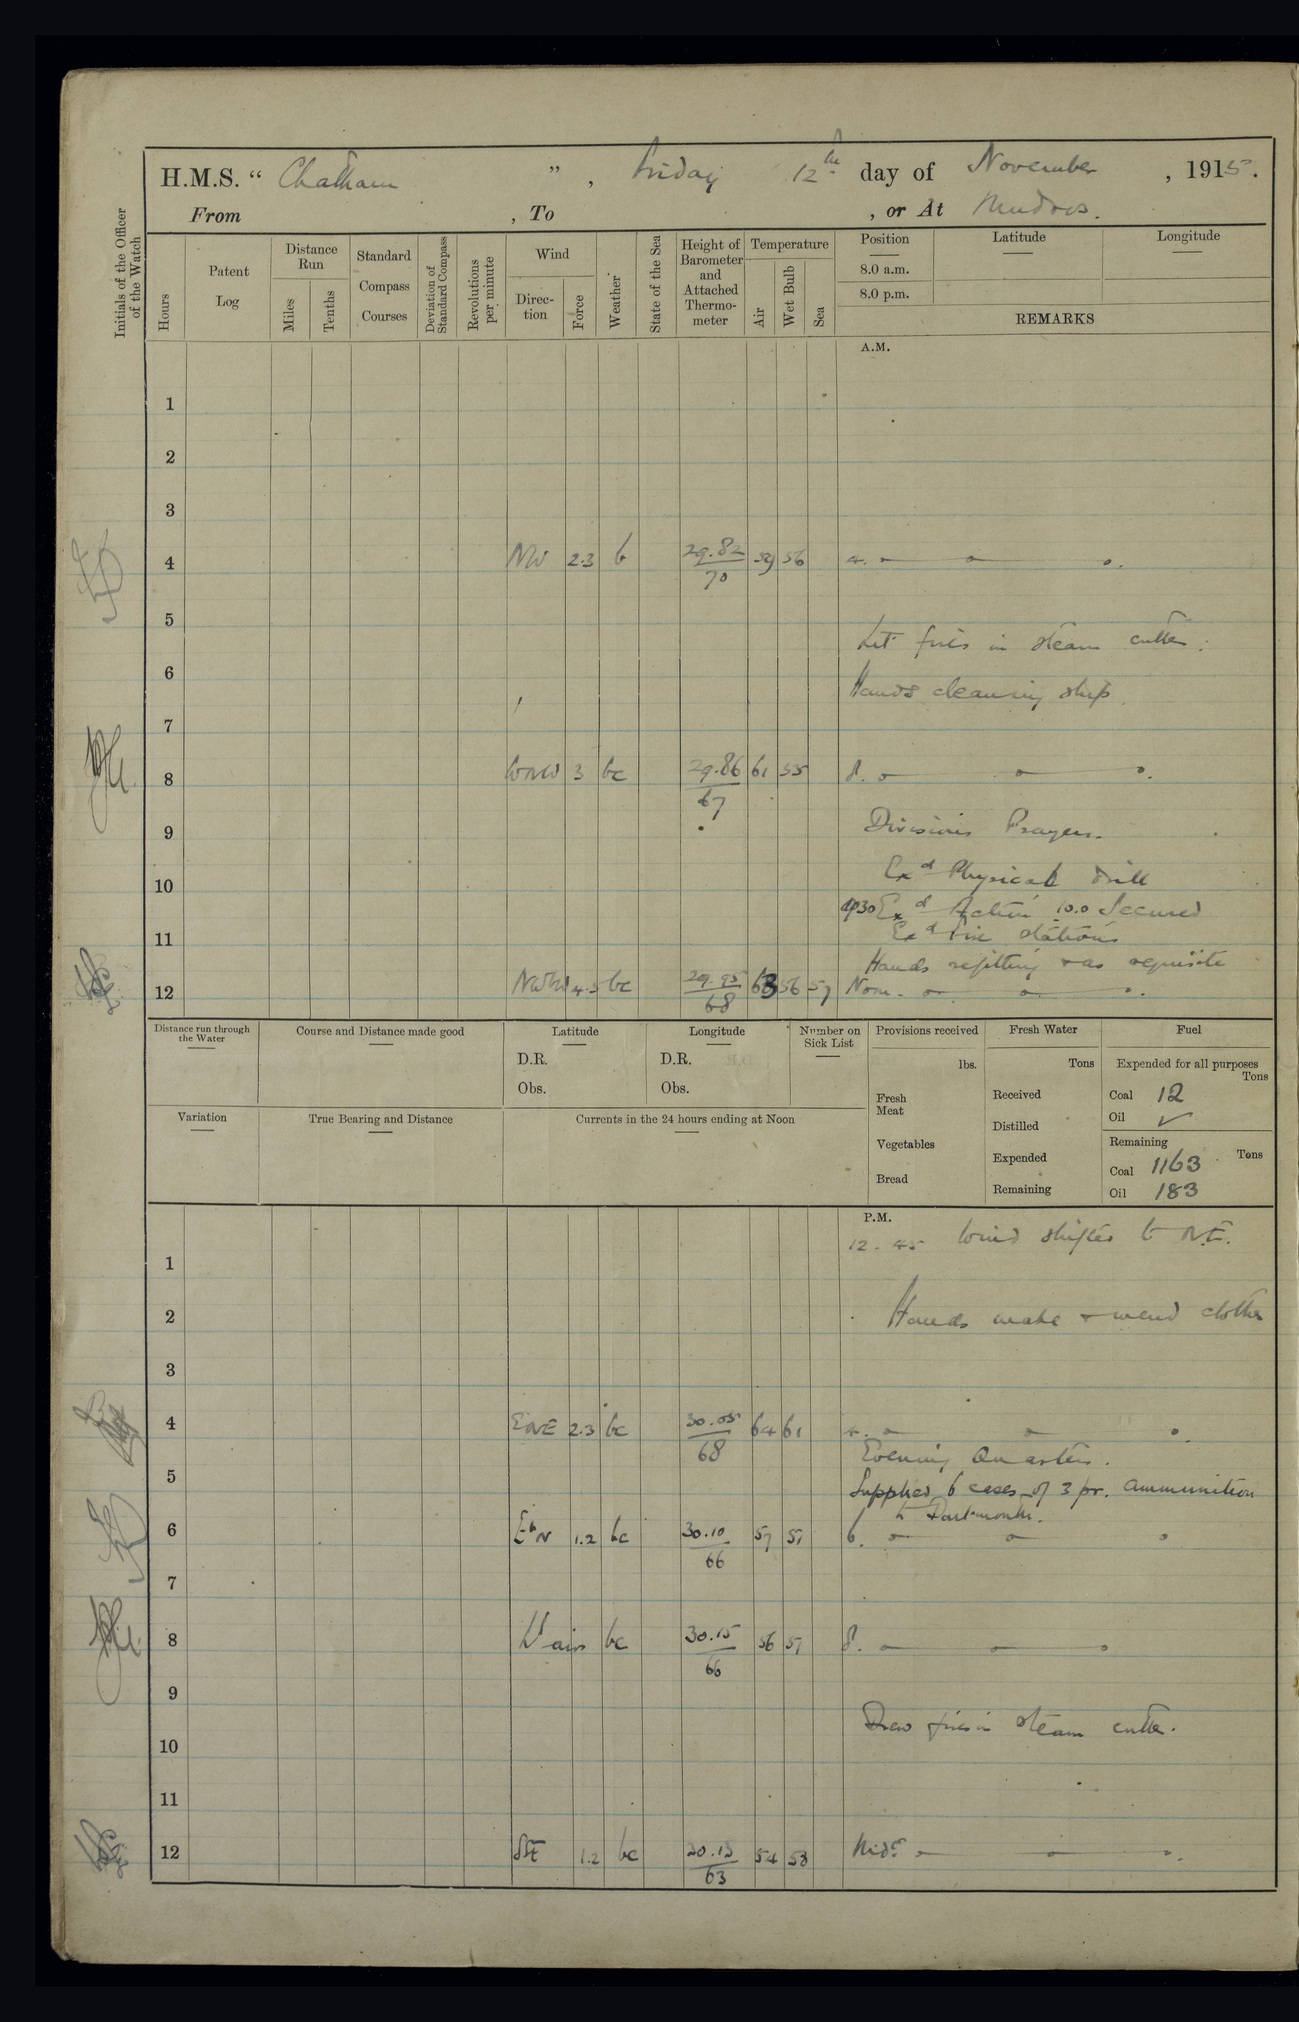 H.M.S. " Chatham ", Friday 12th day of November, 1915.
From , To , or At Mudros.
Initials of the Officer of the Watch
Hours
Patent Log
Distance Run
Miles
Tenths
Standard Compass Courses
Deviation of Standard Compass
Revolutions per minute
Wind
Direction
Force
Weather
State of the Sea
Height of Barometer and Attached Thermometer
Temperature
Air
Wet Bulb
Sea
Position
Latitude
Longitude
8.0 a.m.
8.0 p.m.
REMARKS
A.M.
1
2
3
4 NW 2.3 b 29.82/70 59 56 4.
5
Lit fires in steam cutter.
6
Hands cleaning ship.
7
8 WNW 3 bc 29.86/67 61 55 8.
9 Divisions Prayers.
Exd Physical drill
10
9.30 Exd Action 10.0 Secured
Exd Fire stations
11
Hands refitting & as requisite
12 NWbW 4.5 bc 29.95/68 63 56 57 Noon.
Distance run through the Water
Course and Distance made good
Latitude
D.R.
Obs.
Longitude
D.R.
Obs.
Number on Sick List
Provisions received
lbs.
Fresh Meat
Vegetables
Bread
Fresh Water
Tons
Received
Distilled
Expended
Remaining
Fuel
Expended for all purposes
Tons
Coal 12
Oil ✓
Remaining
Tons
Coal 1163
Oil 183
Variation
True Bearing and Distance
Currents in the 24 hours ending at Noon
P.M.
12.45 Wind shifted to N.E.
1
2 Hands make & mend clothes
3
4 ENE 2.3 bc 30.05/68 64 61 4.
Evening Quarters.
5
Supplied 6 cases of 3 pr. ammunition
to Dartmouth.
6 EbN 1.2 bc 30.10/66 57 51 6.
7
8 Lt airs bc 30.15/66 56 51 8.
9
Drew fires in steam cutter.
10
11
12 SSE 1.2 bc 30.15/63 54 53 Midt